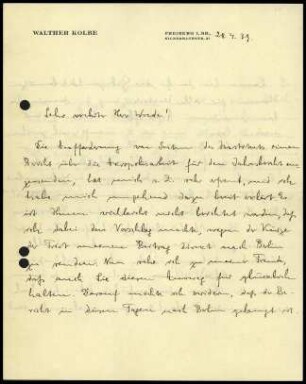 WALTHER KOLBE
FREIBURG I. BR.,
24. 7. 39.
Sehr verehrter Herr Wrede!
Die Aufforderung von Seiten des Instituts einen
Bericht über die für den Jahresbericht ein-
zusenden, hat mich sehr erfreut, und ich
habe mich umgehend dazu bereit erklärt. Es
ist Ihnen vielleicht nicht berichtet worden, daß
ich dabei den Vorschlag machte, wegen der Kürze
der Frist meinen Beitrag direkt nach Berlin
zu senden. Nun sehe ich zu meiner Freude,
daß auch Sie diesen Ausweg für glücklich
halten. Darauf möchte ich erwidern, daß der Be-
richt in diesen Tagen nach Berlin gelangt ist.